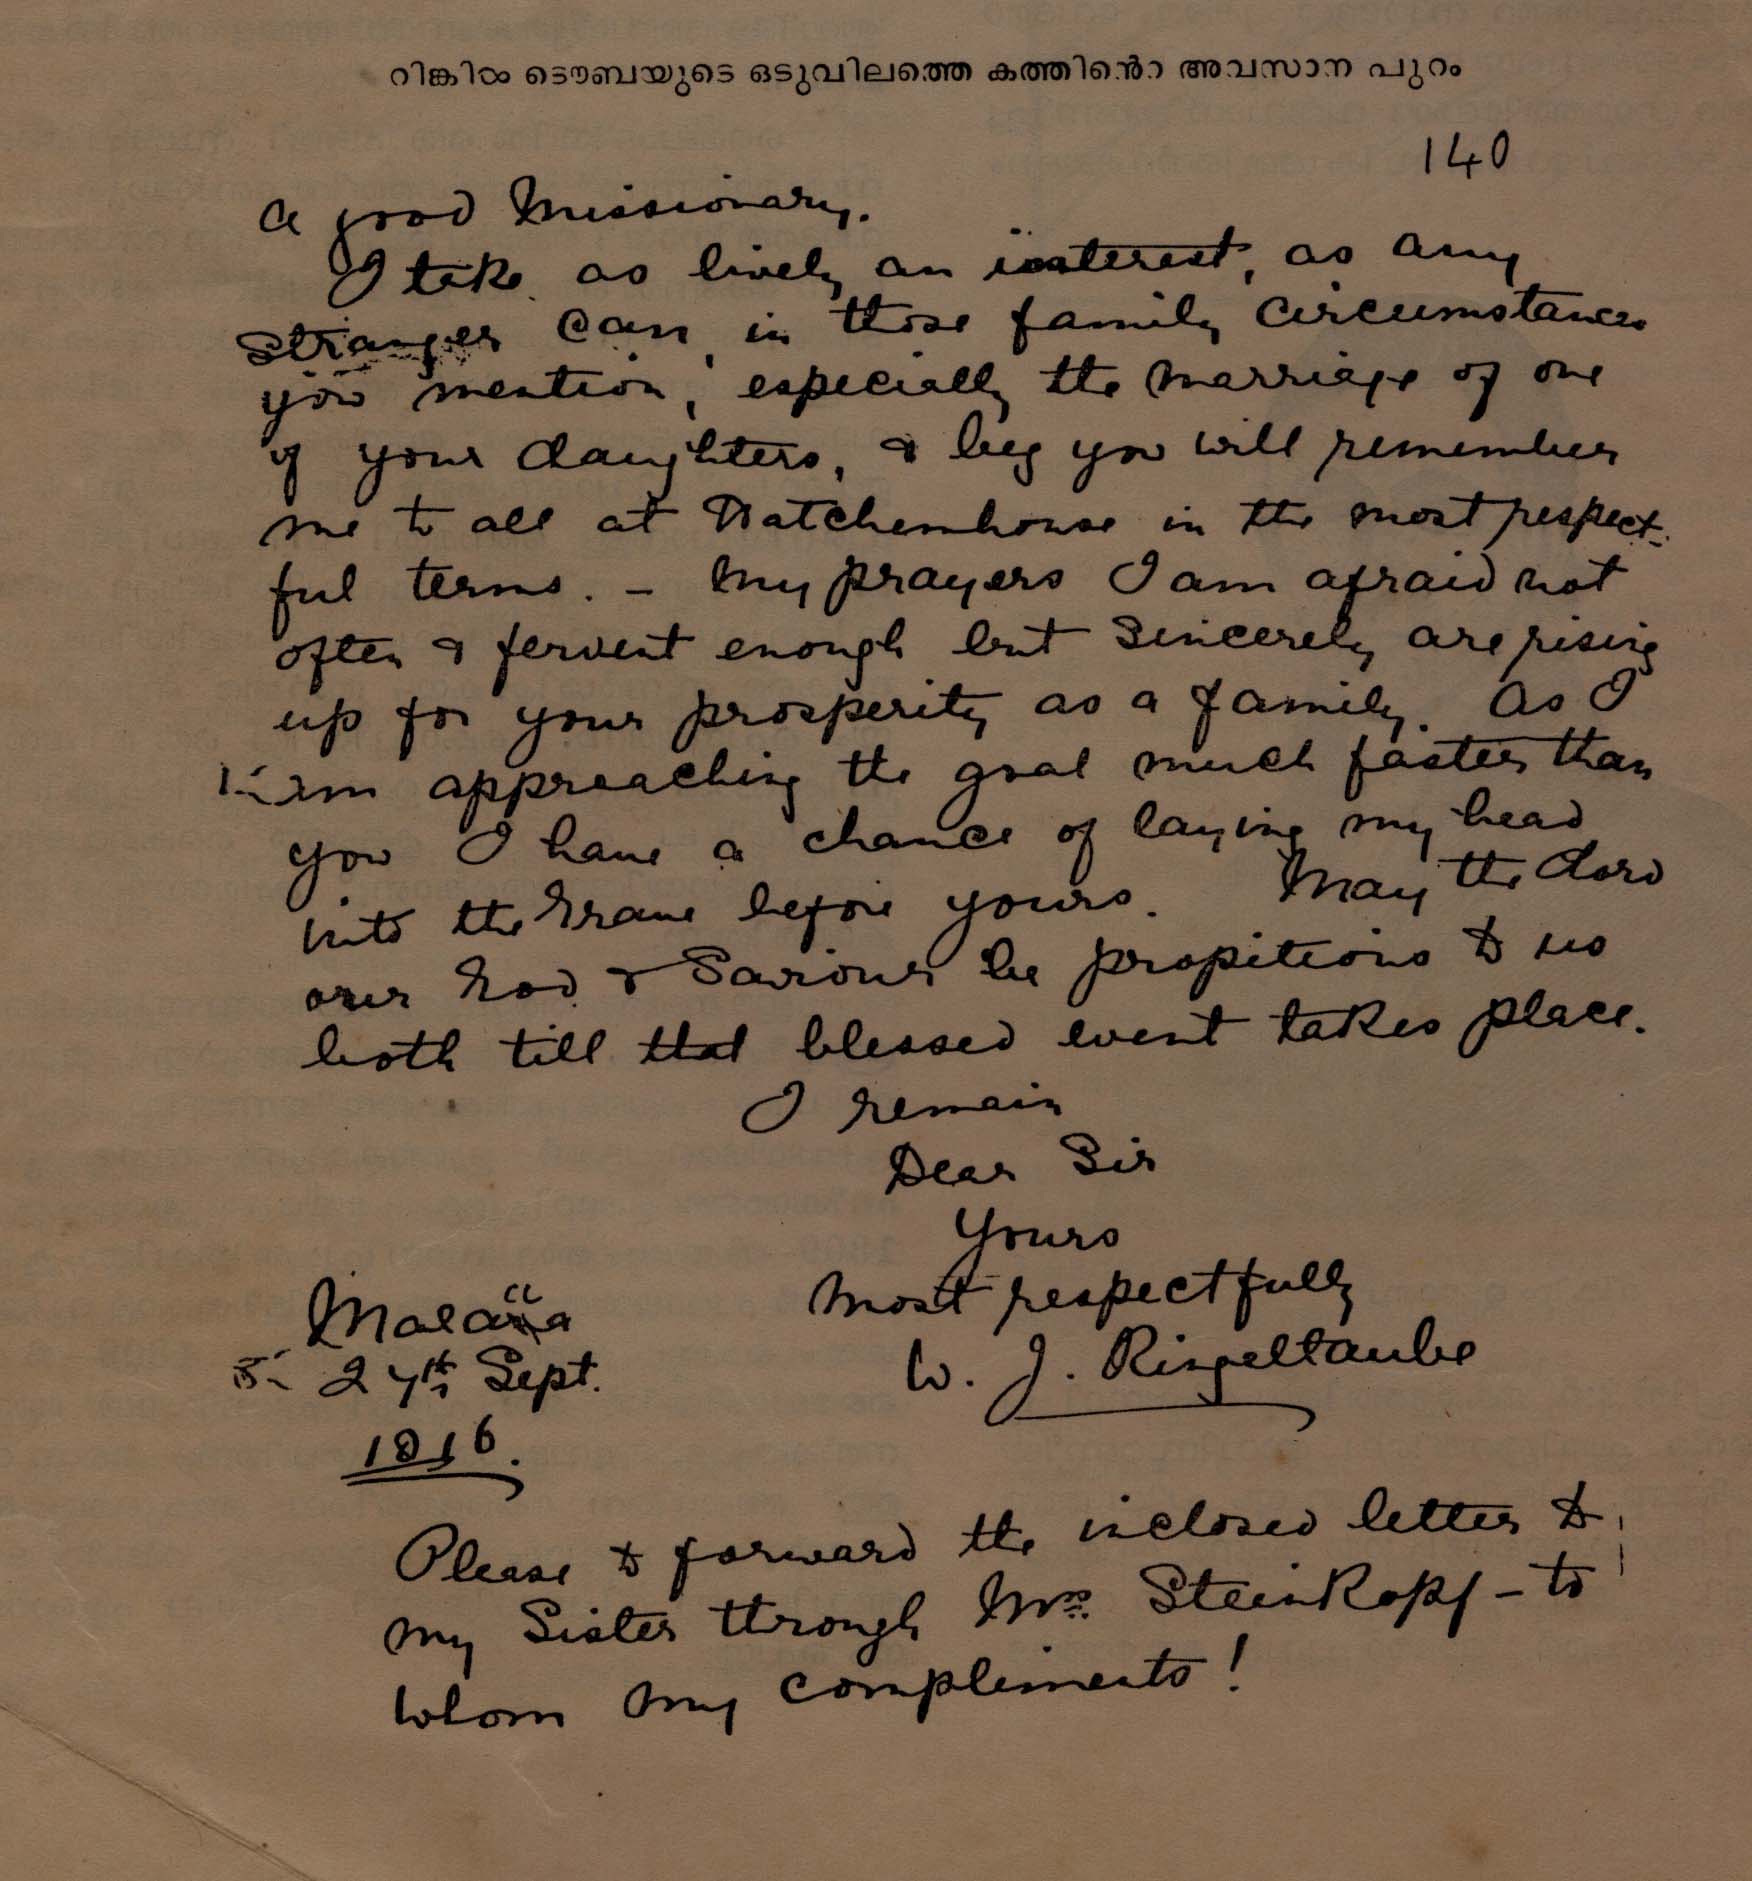 റിങ്കിൾ ടൌബയുടെ ഒടുവിലത്തെ കത്തിൻെറ അവസാന പുറം
140
a good Missionary.
I take as lively an interest, as any
stranger can, in those family circumstances
you mention, especially the marriage of one
of your daughters, & beg you will remember
me to all at Hatchemhouse in the most respect-
ful terms. - My prayers I am afraid not
often & fervent enough but sincerely are rising
up for your prosperity as a family. As I
am approaching the goal much faster than
you I have a chance of laying my head
into the Grave before yours. May the Lord
our God & Saviour be propitious to us
both till that blessed event takes place.
I remain
Dear Sir
Yours
Most respectfully
W. J. Ringeltaube
Malacca
27th Sept.
1816.
Please to forward the inclosed letter to
my Sister through Mrs. Steinkopf - to
whom my compliments!